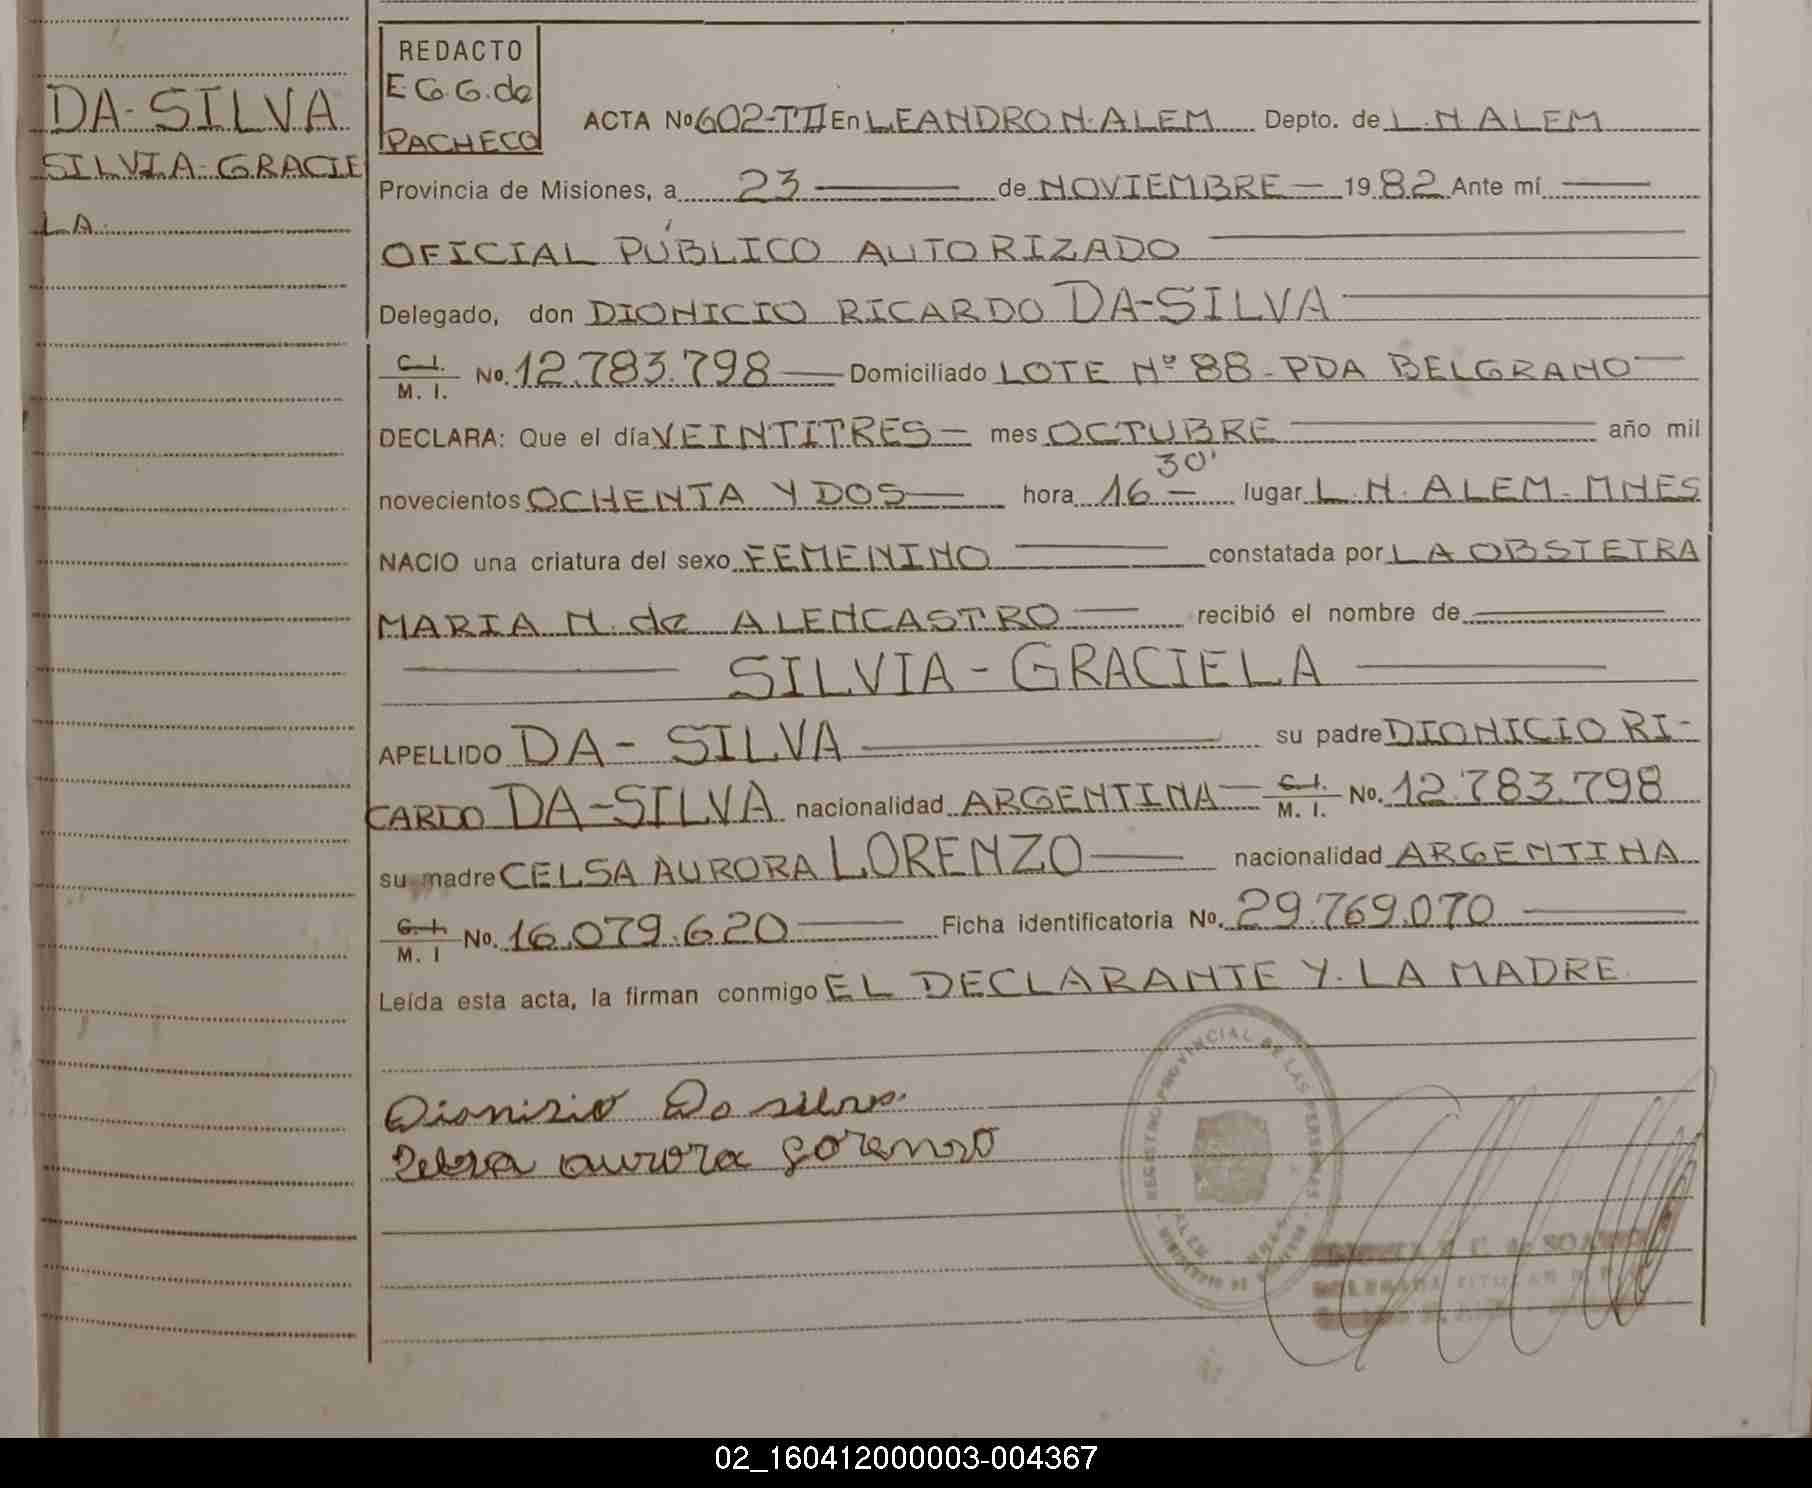 DA-SILVA
SILVIA-GRACIE
LA
REDACTO
E. G. G. de
PACHECO
ACTA No 602-TII En LEANDRO N. ALEM Depto. de L. N ALEM
Provincia de Misiones, a 23 de NOVIEMBRE 1982 Ante mí
OFICIAL PÚBLICO AUTORIZADO
Delegado, don DIONICIO RICARDO DA-SILVA
C. I. M. I. No. 12.783.798 Domiciliado LOTE Nº 88 - PDA BELGRANO
DECLARA: Que el día VEINTITRES mes OCTUBRE año mil
novecientos OCHENTA Y DOS hora 16 30' lugar L. N. ALEM - MNES
NACIO una criatura del sexo FEMENINO constatada por LA OBSTETRA
MARIA N. de ALENCASTRO recibió el nombre de
SILVIA - GRACIELA
APELLIDO DA - SILVA su padre DIONICIO RI-
CARDO DA-SILVA nacionalidad ARGENTINA C. I. M. I. No. 12.783.798
su madre CELSA AURORA LORENZO nacionalidad ARGENTINA
C. I. M. I No. 16.079.620 Ficha identificatoria No. 29.769.070
Leída esta acta, la firman conmigo EL DECLARANTE Y LA MADRE
REGISTRO PROVINCIAL DE LAS PERSONAS
Dionisio Da silva.
Celsa aurora Lorenzo
02_160412000003-004367